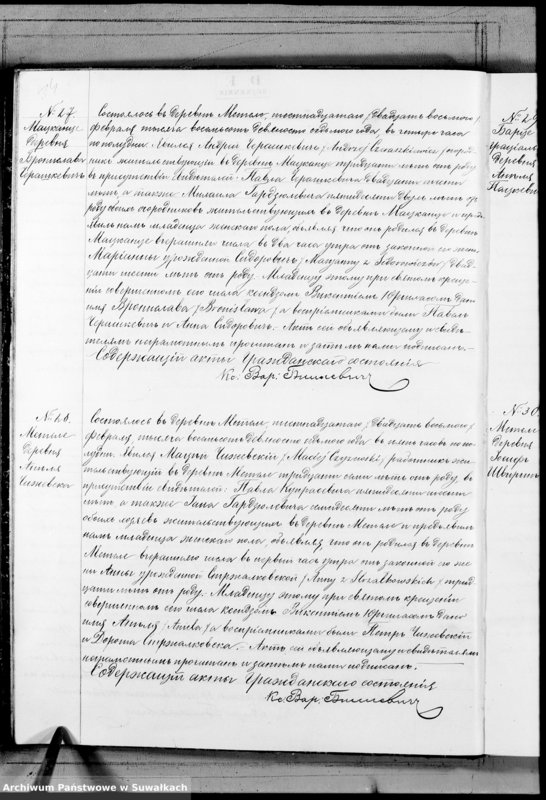 № 27.
Мацканце
Деревня
Бронислава
Черашкевичъ
Состоялось въ деревнѣ Метеле, шестнадцатаго /двадцать восьмого/
февраля тысяча восемьсотъ девяносто седьмого года, въ четыре часа
по полудни. Явился Андрей Черашкевичъ /Andrzej
житель­ствующій въ деревнѣ Мацканце тридцати лѣтъ отъ роду
въ присутствіи свидѣтелей: Павла Черашкевича двадцати шести
лѣтъ, а также Михаила Гардзюлевича пятидесяти двухъ лѣтъ отъ
роду обоихъ огородниковъ жительствующихъ въ деревнѣ Мацканце и предъ-
явилъ намъ младенца женскаго пола, объявляя, что онъ родился въ деревнѣ
Мацканце вчерашняго числа въ два часа утра отъ законной его жены
Маріанны урожденной Сидоровичъ /Maryanny z Sidorowiczów/ двад-
цати шести лѣтъ отъ роду. Младенцу этому при святомъ креще-
ніи совершенномъ сего числа ксендзомъ Викентіемъ Юргиласомъ дано
имя Бронислава /Bronisława/, а воспріемниками были Павелъ
Черашкевичъ и Анна Сидоровичъ. Актъ сей объявляющему и свидѣ-
телямъ неграмотнымъ прочитанъ и засимъ нами подписанъ.
Содержащій акты гражданскаго состоянія
Кс. Вар.
№ 28.
Метеле
Деревня
Анеля
Чижевска
Состоялось въ деревнѣ Метеле, шестнадцатаго /двадцать восьмого/
февраля, тысяча восемьсотъ девяносто седьмого года въ пять часовъ по по-
лудни. Явился Мацѣй Чижевскій /Maciej Czyżewski/, работникъ жи-
тельствующій въ деревнѣ Метеле тридцати семи лѣтъ отъ роду, въ
присутствіи свидѣтелей: Павла Купрасевича пятидесяти шести
лѣтъ а также Яна Гардзюлевича семидесяти лѣтъ отъ роду
обоихъ жительствующихъ въ деревнѣ Метеле и предъявилъ
намъ младенца женскаго пола объявляя, что онъ родился въ деревнѣ
Метеле вчерашняго числа въ первый часъ утра отъ законной его же-
ны Анны урожденной Стржалковской /Anny z Strzałkowskich/ трид-
цати лѣтъ отъ роду. Младенцу этому при святомъ крещеніи
совершенномъ сего числа ксендзомъ Викентіемъ Юргиласомъ дано
имя Анеля /Aniela/, а воспріемниками были Петръ Чижевскій
и Дорота Стржалковска. Актъ сей объявляющему и свидѣтелямъ
неграмотнымъ прочитанъ и засимъ нами подписанъ.
Содержащій акты гражданскаго состоянія
Кс. Вар.
№ 29
Деревня
Анеля
№ 30.
Метеле
Деревня
Archiwum Państwowe w Suwałkach